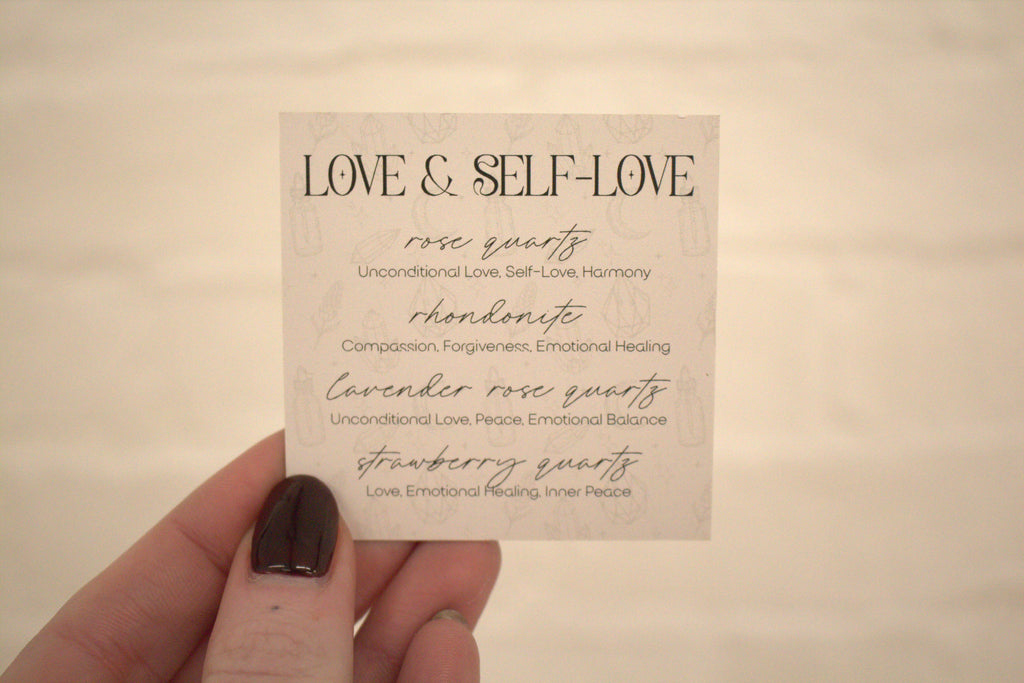 LOVE & SELF-LOVE
rose quartz
Unconditional Love, Self-Love, Harmony
rhondonite
Compassion, Forgiveness, Emotional Healing
lavender rose quartz
Unconditional Love, Peace, Emotional Balance
strawberry quartz
Love, Emotional Healing, Inner Peace